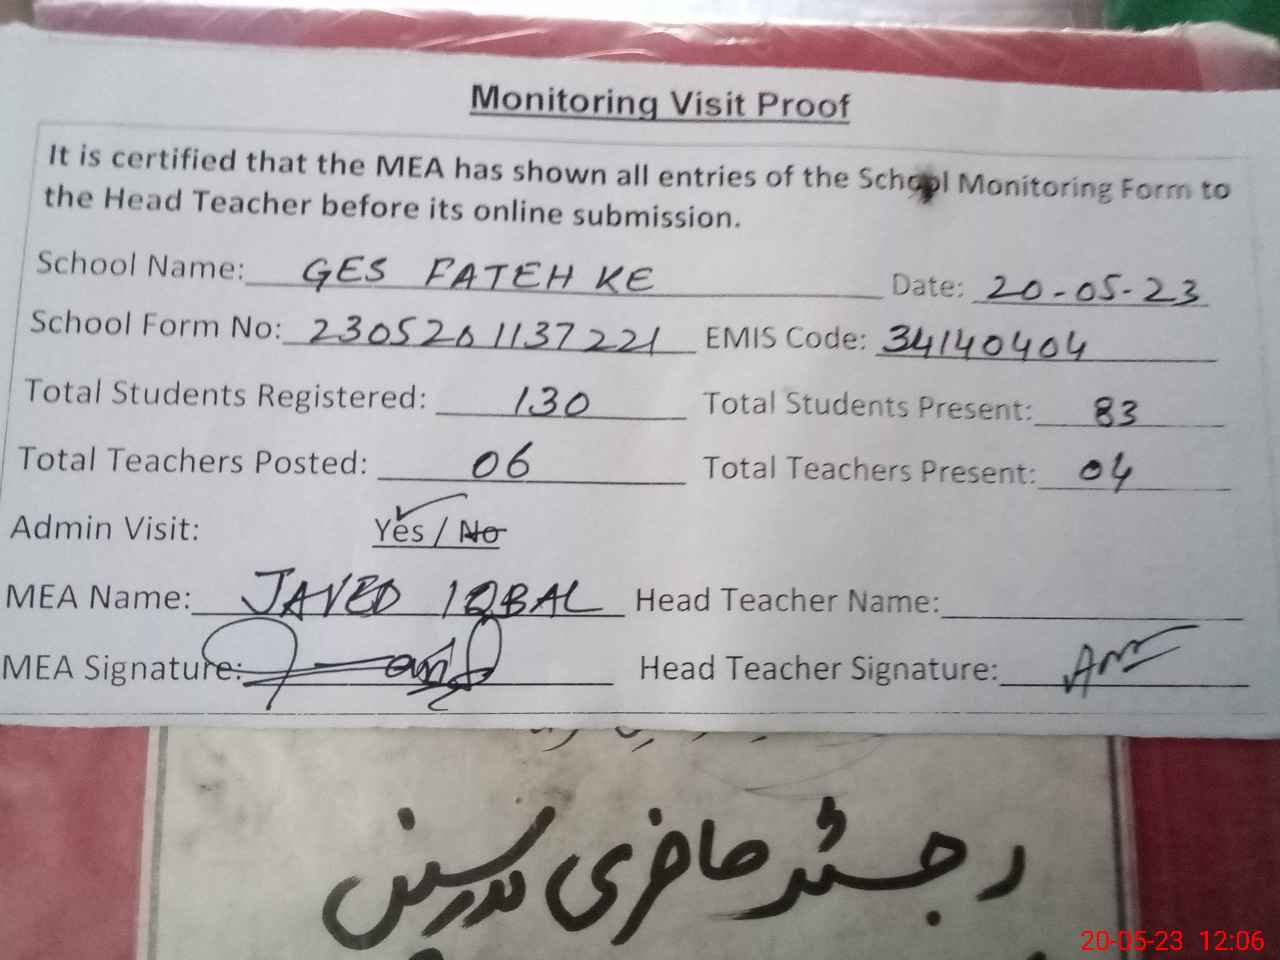 Monitoring Visit Proof
It is certified that the MEA has shown all entries of the School Monitoring Form to
the Head Teacher before its online submission.
School Name: GES FATEH KE Date: 20-05-23
School Form No: 2305201137221 EMIS Code: 34140404
Total Students Registered: 130 Total Students Present: 83
Total Teachers Posted: 06 Total Teachers Present: 04
Admin Visit: Yes / No
MEA Name: JAVED IQBAL Head Teacher Name:
MEA Signature: Head Teacher Signature:
رجسٹر حاضری مدرسین
20-05-23 12:06